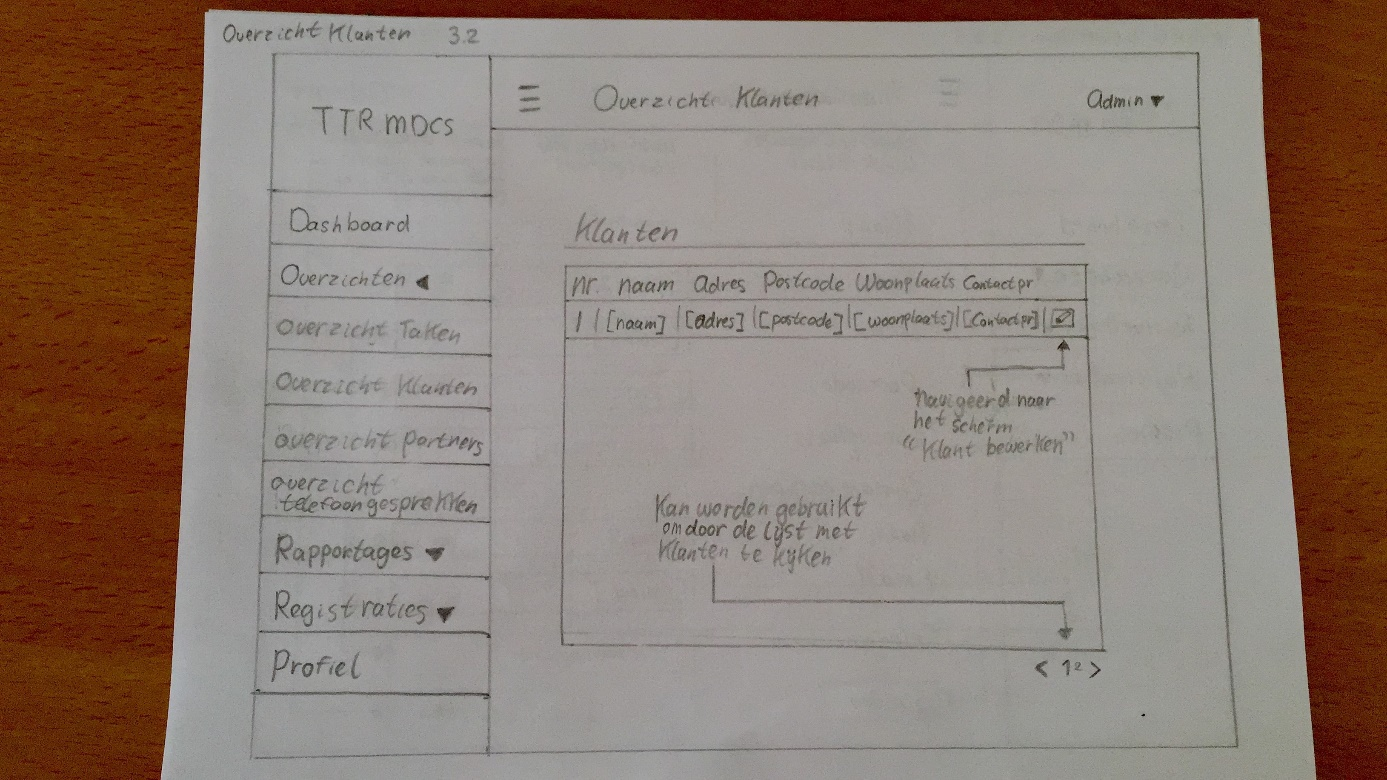 Overzicht Klanten 3.2
TTR MDCS
Overzicht Klanten
Admin
Dashboard
Overzichten
Overzicht Taken
Overzicht Klanten
Overzicht partners
overzicht
telefoongesprekken
Rapportages
Registraties
Profiel
Klanten
nr. naam Adres Postcode Woonplaats Contactpr
1 | [naam] | [adres] | [postcode] | [woonplaats] | [Contactpr] |
navigeerd naar
het scherm
"Klant bewerken"
Kan worden gebruikt
om door de lijst met
Klanten te kijken
< 1 2 >